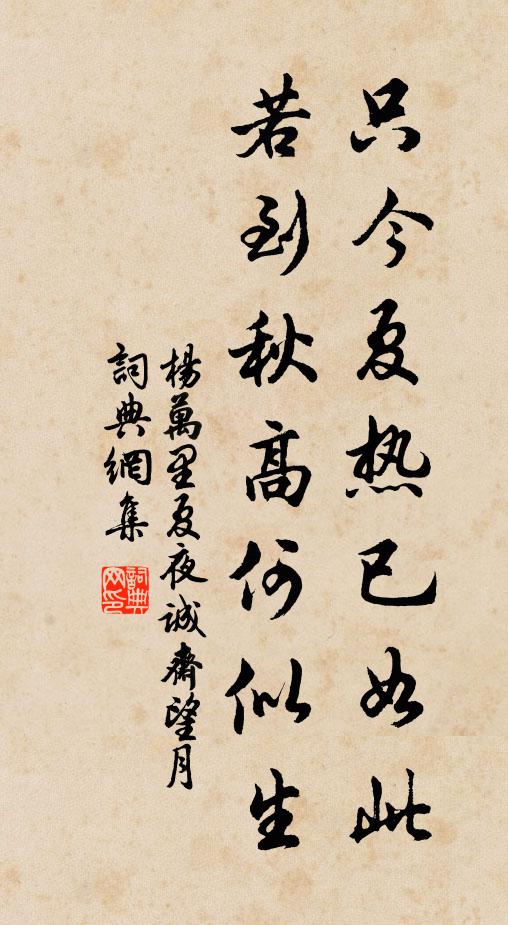 只今夏热已如此
若到秋高何似生
楊萬里夏夜誠齋望月
詞典網集
詞典網印